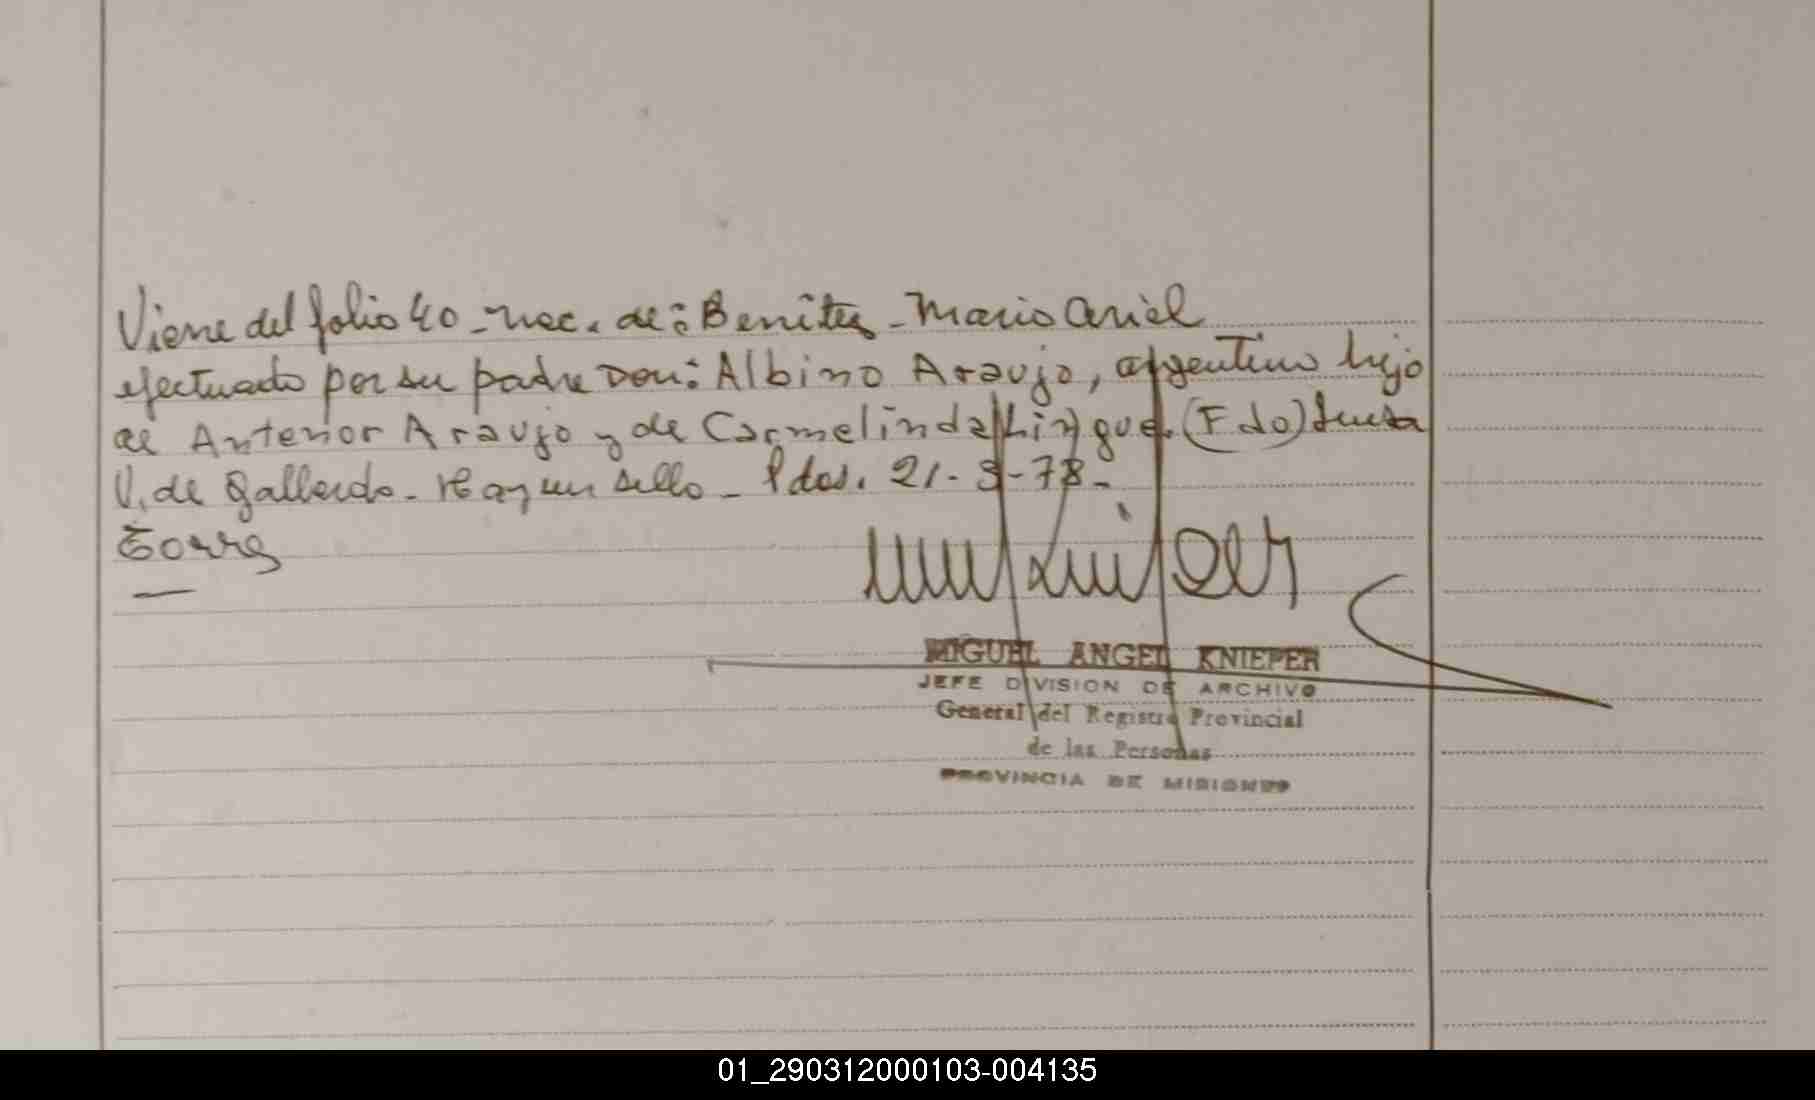 Viene del folio 40 - nac. de: Benitez - Mario Ariel
efectuado por su padre Don: Albino Araujo, argentino hijo
de Antenor Araujo y de Carmelinda Lingue. (Fdo)
V. de Gallardo - Hay un sello - Pdas. 21-9-78-
Torres
MIGUEL ANGEL KNIEPER
JEFE DIVISION DE ARCHIVO
General del Registro Provincial
de las Personas
PROVINCIA DE MISIONES
01_290312000103-004135